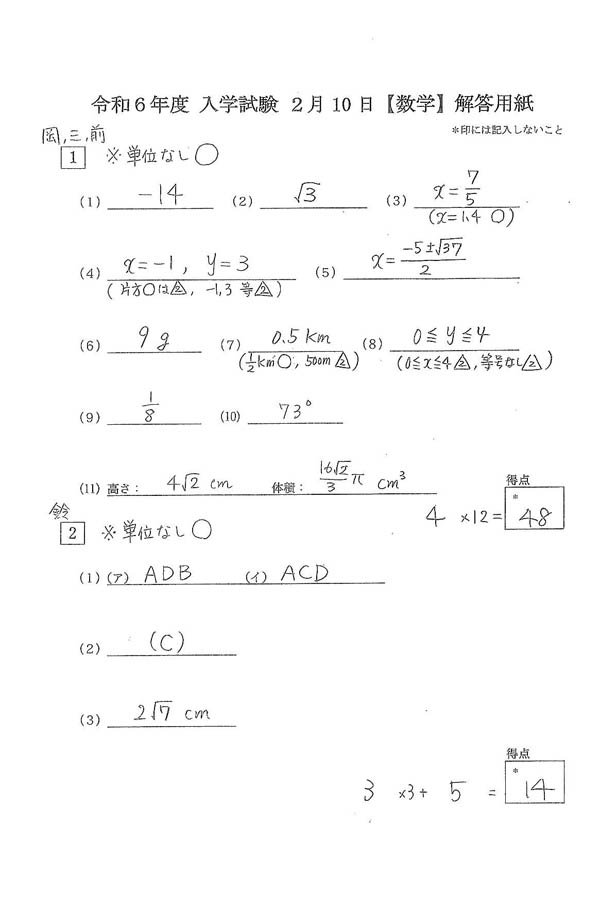 令和6年度 入学試験 2月10日【数学】解答用紙
岡,三,前
*印には記入しないこと
1 ※単位なし○
(1) -14 (2) √3 (3) x=7/5
(x=1.4 ○)
(4) x=-1, y=3 (5) x=-5±√37/2
(片方○は△2, -1,3 等△2)
(6) 9g (7) 0.5km (8) 0≦y≦4
(1/2km○, 500m△2) (0≦x≦4△2, 等号なし△2)
(9) 1/8 (10) 73°
(11) 高さ: 4√2 cm 体積: 16√2/3 π cm³
得点
4 ×12= * 48
鈴
2 ※単位なし○
(1) (ア) ADB (イ) ACD
(2) (C)
(3) 2√7 cm
得点
3 ×3+ 5 = * 14